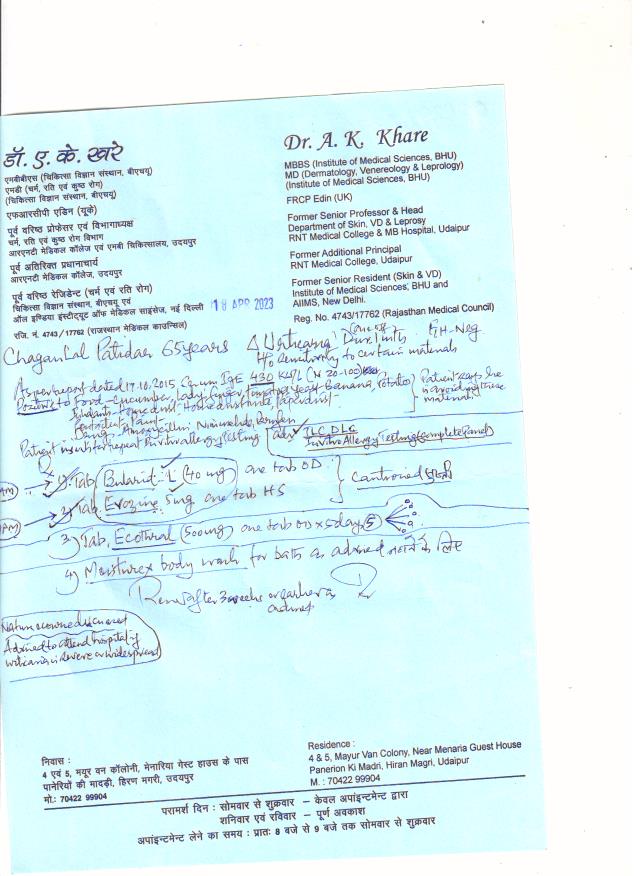 डॉ. ए. के. खरे
एमबीबीएस (चिकित्सा विज्ञान संस्थान, बीएचयू)
एमडी (चर्म, रति एवं कुष्ठ रोग)
(चिकित्सा विज्ञान संस्थान, बीएचयू)
एफआरसीपी एडिन (यूके)
पूर्व वरिष्ठ प्रोफेसर एवं विभागाध्यक्ष
चर्म, रति एवं कुष्ठ रोग विभाग
आरएनटी मेडिकल कॉलेज एवं एमबी चिकित्सालय, उदयपुर
पूर्व अतिरिक्त प्रधानाचार्य
आरएनटी मेडिकल कॉलेज, उदयपुर
पूर्व वरिष्ठ रेजिडेंट (चर्म एवं रति रोग)
चिकित्सा विज्ञान संस्थान, बीएचयू एवं
ऑल इण्डिया इंस्टीट्यूट ऑफ मेडिकल साइंसेज, नई दिल्ली
रजि. नं. 4743/17762 (राजस्थान मेडिकल काउन्सिल)
Dr. A. K. Khare
MBBS (Institute of Medical Sciences, BHU)
MD (Dermatology, Venereology & Leprology)
(Institute of Medical Sciences, BHU)
FRCP Edin (UK)
Former Senior Professor & Head
Department of Skin, VD & Leprosy
RNT Medical College & MB Hospital, Udaipur
Former Additional Principal
RNT Medical College, Udaipur
Former Senior Resident (Skin & VD)
Institute of Medical Sciences, BHU and
AIIMS, New Delhi.
Reg. No. 4743/17762 (Rajasthan Medical Council)
18 APR 2023
Chagan Lal Patidar 65 years Δ Urticaria FH-Neg
H/o sensitivity to certain materials
As per report dated 17.10.2015, Serum IgE 430 KU/L (N 20-100)
Positive to Food - Cucumber, Lady finger, Banana, Potato
Patient says he
is avoiding these
materials
Drug - Amoxicillin, Nimesulide
Patient insists for repeat Invitro allergy testing
Adv TLC DLC
Invitro Allergy Testing (Complete Panel)
Rx
1) Tab. Bilarist-L (40 mg) one tab OD
2) Tab. Evozine 5mg one tab HS
3) Tab. Ecothral (500mg) one tab OD x 5 days (5)
4) Moisturex body wash for bath as advised नहाने के लिए
Review after 3 weeks or earlier as
advised
Advised to attend hospital if
urticaria is severe or widespread
निवास :
4 एवं 5, मयूर वन कॉलोनी, मेनारिया गेस्ट हाउस के पास
पानेरियों की मादड़ी, हिरण मगरी, उदयपुर
मो.: 70422 99904
Residence :
4 & 5, Mayur Van Colony, Near Menaria Guest House
Panerion Ki Madri, Hiran Magri, Udaipur
M. : 70422 99904
परामर्श दिन : सोमवार से शुक्रवार – केवल अपांइन्टमेन्ट द्वारा
शनिवार एवं रविवार – पूर्ण अवकाश
अपांइन्टमेन्ट लेने का समय : प्रातः 8 बजे से 9 बजे तक सोमवार से शुक्रवार